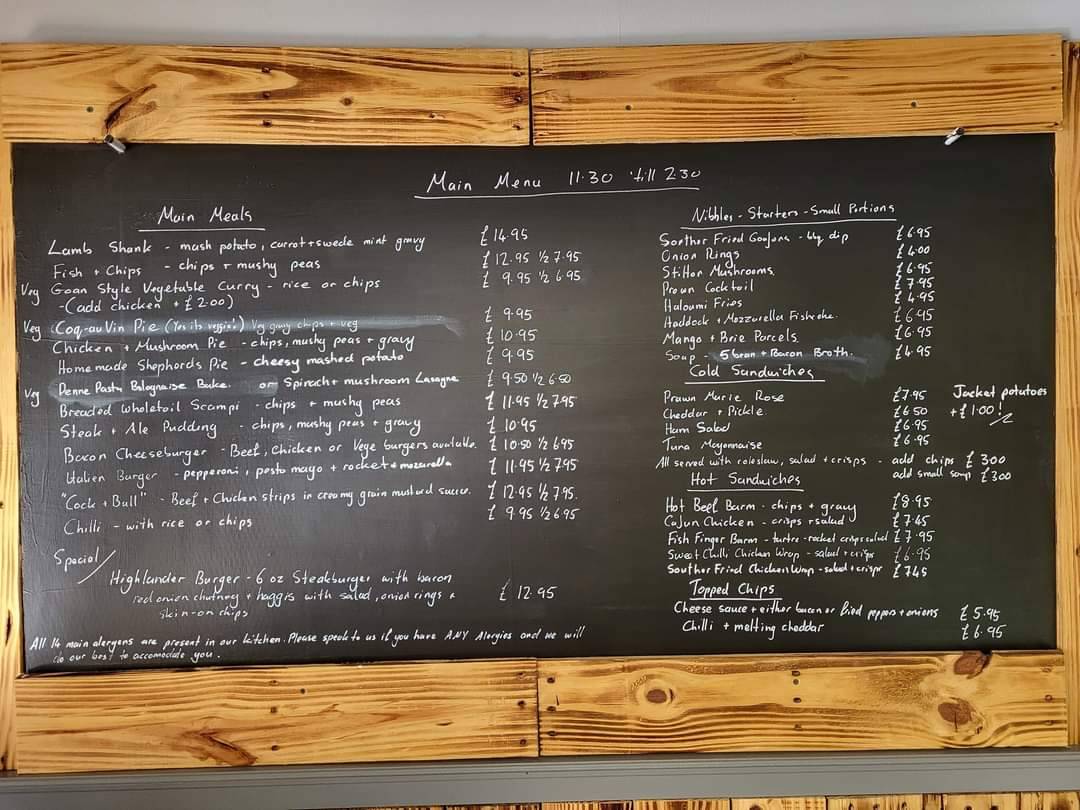 Main Menu 11.30 'till 2.30
Main Meals
Lamb Shank - mash potato, carrot+swede mint gravy £14.95
Fish + Chips - chips + mushy peas £12.95 ½ 7.95
Veg Goan Style Vegetable Curry - rice or chips £9.95 ½ 6.95
-(add chicken + £2.00)
Veg Coq-au Vin Pie (Yes its veggie!) Veg gravy chips + veg £9.95
Chicken + Mushroom Pie - chips, mushy peas + gravy £10.95
Homemade Shephords Pie - cheesy mashed potato £9.95
Veg Penne Pasta Bolognaise Bake. or Spinach + mushroom Lasagne £9.50 ½ 6.50
Breaded Wholetail Scampi - chips + mushy peas £11.95 ½ 7.95
Steak + Ale Pudding - chips, mushy peas + gravy £10.95
Bacon Cheeseburger - Beef, Chicken or Vege burgers available. £10.50 ½ 6.95
Italien Burger - pepperoni, pesto mayo + rocket + mozarella £11.95 ½ 7.95
"Cock + Bull" - Beef + Chicken strips in creamy grain mustard sauce. £12.95 ½ 7.95.
Chilli - with rice or chips £9.95 ½ 6.95
Special
Highlander Burger - 6 oz Steakburger with bacon
red onion chutney + haggis with salad, onion rings + £12.95
skin-on chips
All 14 main alergens are present in our kitchen. Please speak to us if you have ANY Alergies and we will
do our best to accomodate you.
Nibbles - Starters - Small Portions
Souther Fried Goujons - bbq dip £6.95
Onion Rings £4.00
Stilton Mushrooms £6.95
Prawn Cocktail £7.95
Haloumi Fries £4.95
Haddock + Mozzurella Fishcake. £6.95
Mango + Brie Parcels £6.95
Soup - 5 bean + Bacon Broth. £4.95
Cold Sandwiches
Prawn Marie Rose £7.95
Cheddar + Pickle £6.50
Ham Salad £6.95
Tuna Mayonnaise £6.95
Jacket potatoes
+£1.00!
All served with coleslaw, salad + crisps - add chips £3.00
add small soup £3.00
Hot Sandwiches
Hot Beef Barm - chips + gravy £8.95
Cajun Chicken - crisps + salad £7.45
Fish Finger Barm - tartre - rocket crisps salad £7.95
Sweet Chilli Chicken Wrap - salad + crisps £6.95
Souther Fried Chicken Wrap - salad + crisps £7.45
Topped Chips
Cheese sauce + either bacon or fried peppers + onions £5.95
Chilli + melting cheddar £6.95